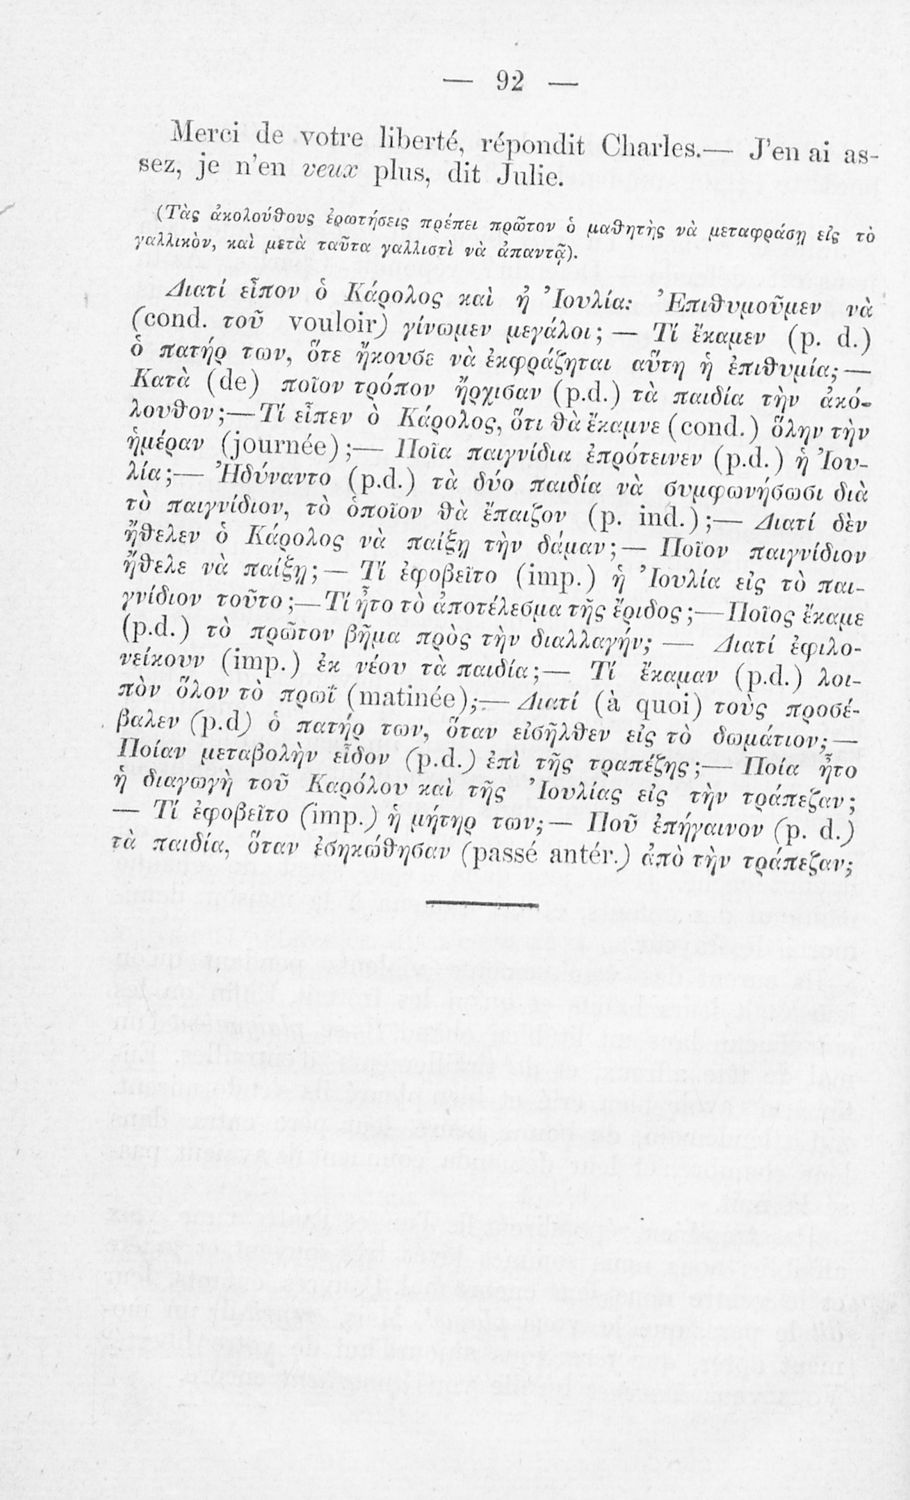 — 92 —
Merci de votre liberté, répondit Charles.— J'en ai as-
sez, je n'en veux plus, dit Julie.
(Τὰς ἀκολούθους ἐρωτήσεις πρέπει πρῶτον ὁ μαθητὴς νὰ μεταφράσῃ εἰς τὸ
γαλλικὸν, καὶ μετὰ ταῦτα γαλλιστὶ νὰ ἀπαντᾷ).
Διατί εἶπον ὁ Κάρολος καὶ ἡ Ἰουλία: Ἐπιθυμοῦμεν νὰ
(cond. τοῦ vouloir) γίνωμεν μεγάλοι; — Τί ἔκαμεν (p. d.)
ὁ πατήρ των, ὅτε ἤκουσε νὰ ἐκφράζηται αὕτη ἡ ἐπιθυμία; —
Κατὰ (de) ποῖον τρόπον ἤρχισαν (p.d.) τὰ παιδία τὴν ἀκό-
λουθον;— Τί εἶπεν ὁ Κάρολος, ὅτι θὰ ἔκαμνε (cond.) ὅλην τὴν
ἡμέραν (journée);— Ποῖα παιγνίδια ἐπρότεινεν (p.d.) ἡ Ἰου-
λία;— Ἠδύναντο (p.d.) τὰ δύο παιδία νὰ συμφωνήσωσι διὰ
τὸ παιγνίδιον, τὸ ὁποῖον θὰ ἔπαιζον (p. ind.);— Διατί δὲν
ἤθελεν ὁ Κάρολος νὰ παίξῃ τὴν δάμαν; — Ποῖον παιγνίδιον
ἤθελε νὰ παίξῃ; — Τί ἐφοβεῖτο (imp.) ἡ Ἰουλία εἰς τὸ παι-
γνίδιον τοῦτο;—Τί ἦτο τὸ ἀποτέλεσμα τῆς ἔριδος;—Ποῖος ἔκαμε
(p.d.) τὸ πρῶτον βῆμα πρὸς τὴν διαλλαγήν; — Διατί ἐφιλο-
νείκουν (imp.) ἐκ νέου τὰ παιδία;— Τί ἔκαμαν (p.d.) λοι-
πὸν ὅλον τὸ πρωῒ (matinée);— Διατί (à quoi) τοὺς προσέ-
βαλεν (p.d) ὁ πατήρ των, ὅταν εἰσῆλθεν εἰς τὸ δωμάτιον; —
Ποίαν μεταβολὴν εἶδον (p.d.) ἐπὶ τῆς τραπέζης;— Ποία ἦτο
ἡ διαγωγὴ τοῦ Καρόλου καὶ τῆς Ἰουλίας εἰς τὴν τράπεζαν;
— Τί ἐφοβεῖτο (imp.) ἡ μήτηρ των;— Ποῦ ἐπήγαινον (p. d.)
τὰ παιδία, ὅταν ἐσηκώθησαν (passé antér.) ἀπὸ τὴν τράπεζαν;